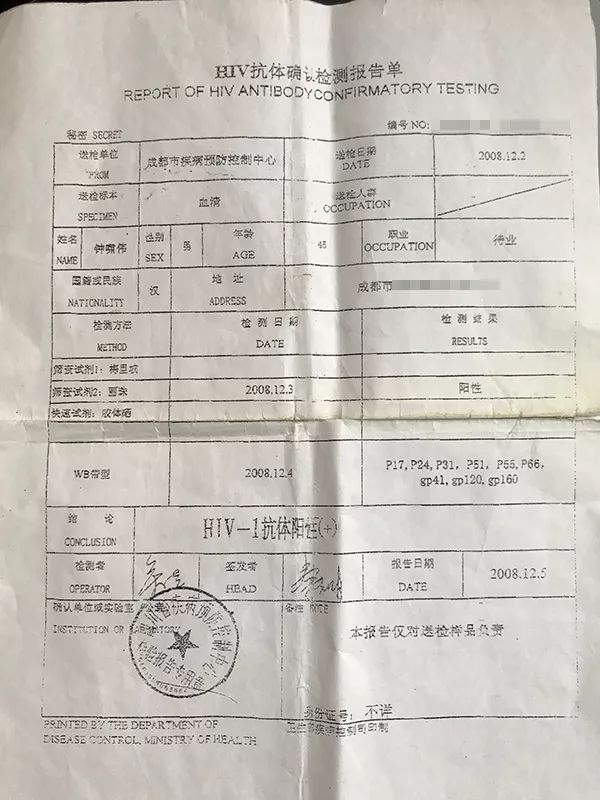 HIV抗体确认检测报告单
REPORT OF HIV ANTIBODY CONFIRMATORY TESTING
秘密 SECRET
编号 NO:
送检单位 FROM 成都市疾病预防控制中心 送检日期 DATE 2008.12.2
送检标本 SPECIMEN 血清 送检人群 OCCUPATION
姓名 NAME 钟啸伟 性别 SEX 男 年龄 AGE 45 职业 OCCUPATION 待业
国籍或民族 NATIONALITY 汉 地址 ADDRESS 成都市
检测方法 METHOD 检测日期 DATE 检测结果 RESULTS
筛查试剂1: 梅里埃
筛查试剂2: 丽珠 2008.12.3 阳性
快速试剂: 胶体硒
WB带型 2008.12.4 P17,P24,P31, P51, P55,P66,
gp41,gp120,gp160
结论 CONCLUSION HIV-1抗体阳性(+)
检测者 OPERATOR 签发者 HEAD 报告日期 DATE 2008.12.5
确认单位或实验室
INSTITUTION OR LABORATORY
备注 NOTE
疾病预防控制中心
检验报告专用章
本报告仅对送检样品负责
身份证号: 不详
PRINTED BY THE DEPARTMENT OF
DISEASE CONTROL, MINISTRY OF HEALTH
卫生部疾病控制司印制